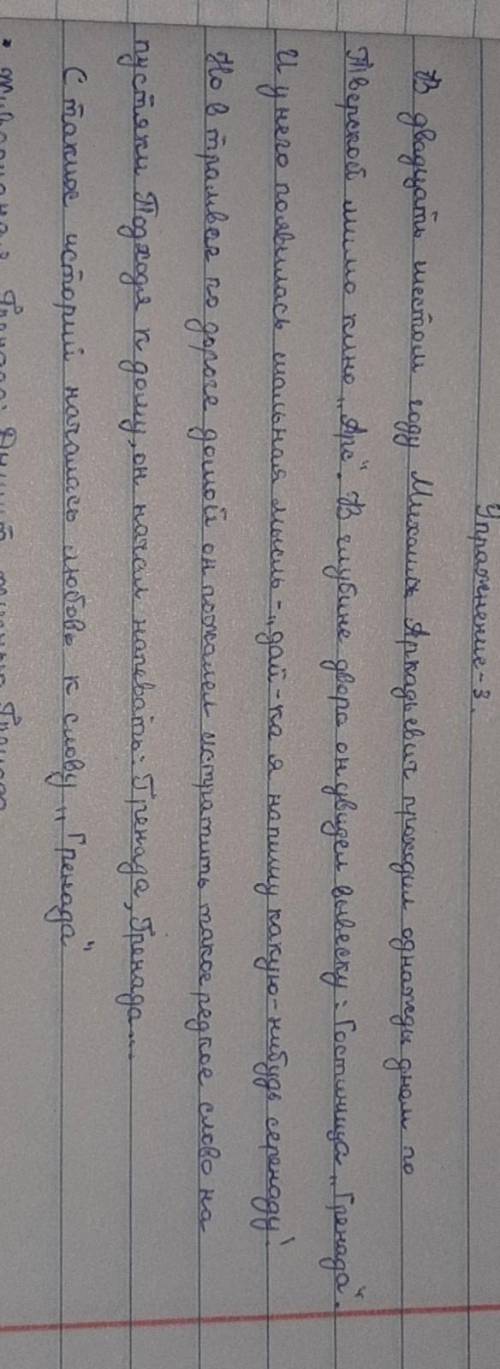 Упражнение-3.
В двадцать шестом году Михаил Аркадьевич проходил однажды днём по
Тверской мимо кино „Арс“. В глубине двора он увидел вывеску: Гостиница „Гренада“.
И у него появилась шальная мысль-„дай-ка я напишу какую-нибудь серенаду!
Но в трамвае по дороге домой он пожалел истратить такое редкое слово на
пустяки Подходя к дому, он начал напевать: Гренада, Гренада...
С таких историй началась любовь к слову „Гренада“